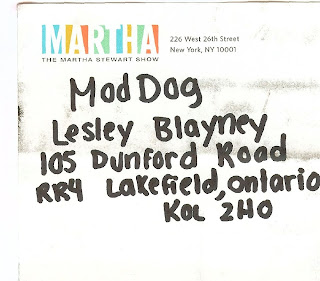 MARTHA
THE MARTHA STEWART SHOW
226 West 26th Street
New York, NY 10001
Mad Dog
Lesley Blayney
105 Dunford Road
RR4 Lakefield, ontario
KOL 2HO